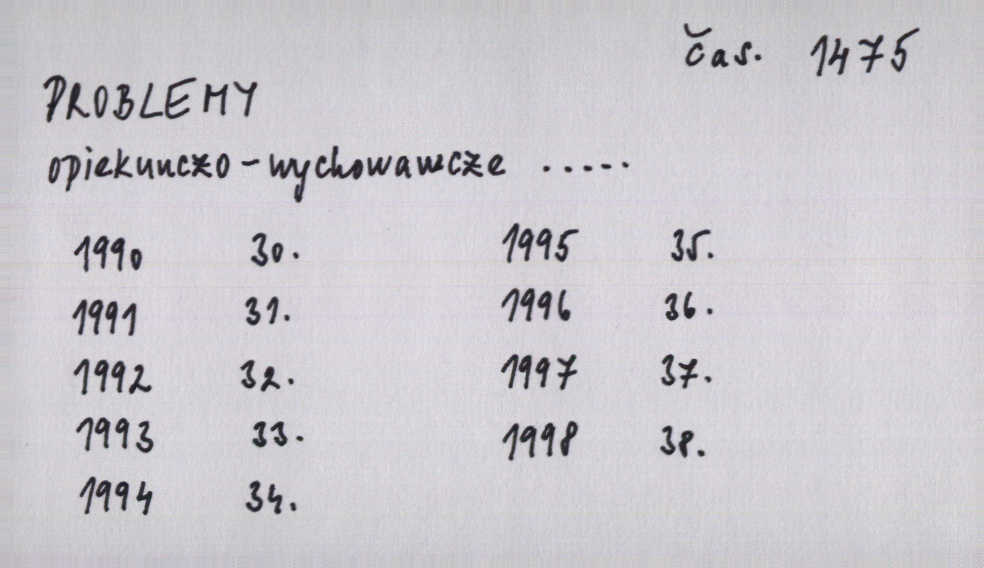 čas. 1475
PROBLEMY
opiekunczo-wychowawcze .....
1990 30.
1991 31.
1992 32.
1993 33.
1994 34.
1995 35.
1996 36.
1997 37.
1998 38.